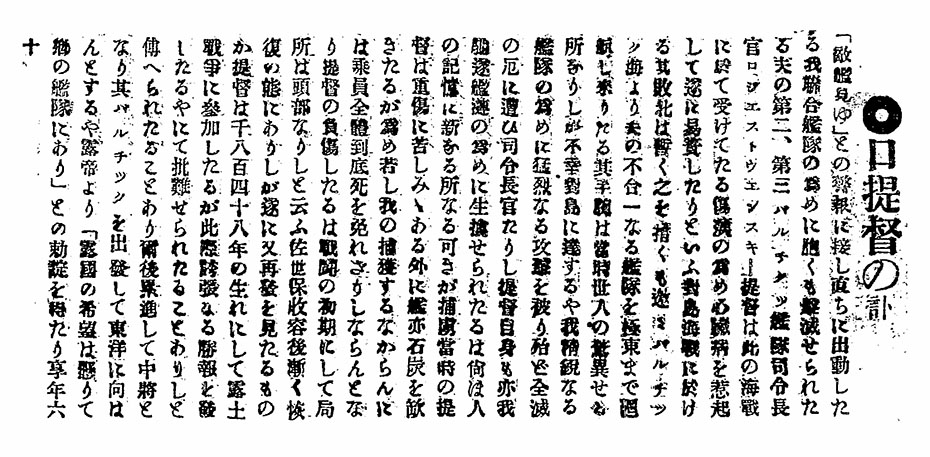 ◉ロ提督の訃
「敵艦見ゆ」との警報に接し直ちに出動した
る我聯合艦隊の為めに脆くも撃滅せられた
る夫の第二、第三バルチック艦隊司令長
官ロジエストウエンスキー提督は此の海戰
に於て受けたる傷痍の為め心臓病を惹起
して遂に易簀したりといふ對島海戰に於け
る其敗北は暫く之を措くも遼々バルチッ
ク海より夫の不合一なる艦隊を極東まで廻
航し來りたる其手腕は當時世人の驚異せる
所なりしが不幸對島に達するや我精鋭なる
艦隊の為めに猛烈なる攻撃を被り殆ど全滅
の厄に遭ひ司令長官たりし提督自身も亦我
驅逐艦漣の為めに生擒せられたるは尚ほ人
の記憶に新なる所なる可きが捕虜當時の提
督は重傷に苦しみゝある外に艦亦石炭を歓
きたるが為め若し我の捕獲するなからんに
は乗員全體到底死を免れざりしならんとな
り提督の負傷したるは戰鬪の初期にして局
所は頭部なりしと云ふ佐世保收容後漸く恢
復の態にありしが遂に又再發を見たるもの
か提督は千八百四十八年の生れにして露土
戰爭に參加したるが此際誇張なる勝報を發
したるやにて批難せられたることありしと
傳へられたることあり爾後累進して中將と
なり其バルチックを出發して東洋に向は
んとするや露帝より「露國の希望は懸りて
卿の艦隊にあり」との勅諚を得たり享年六
十